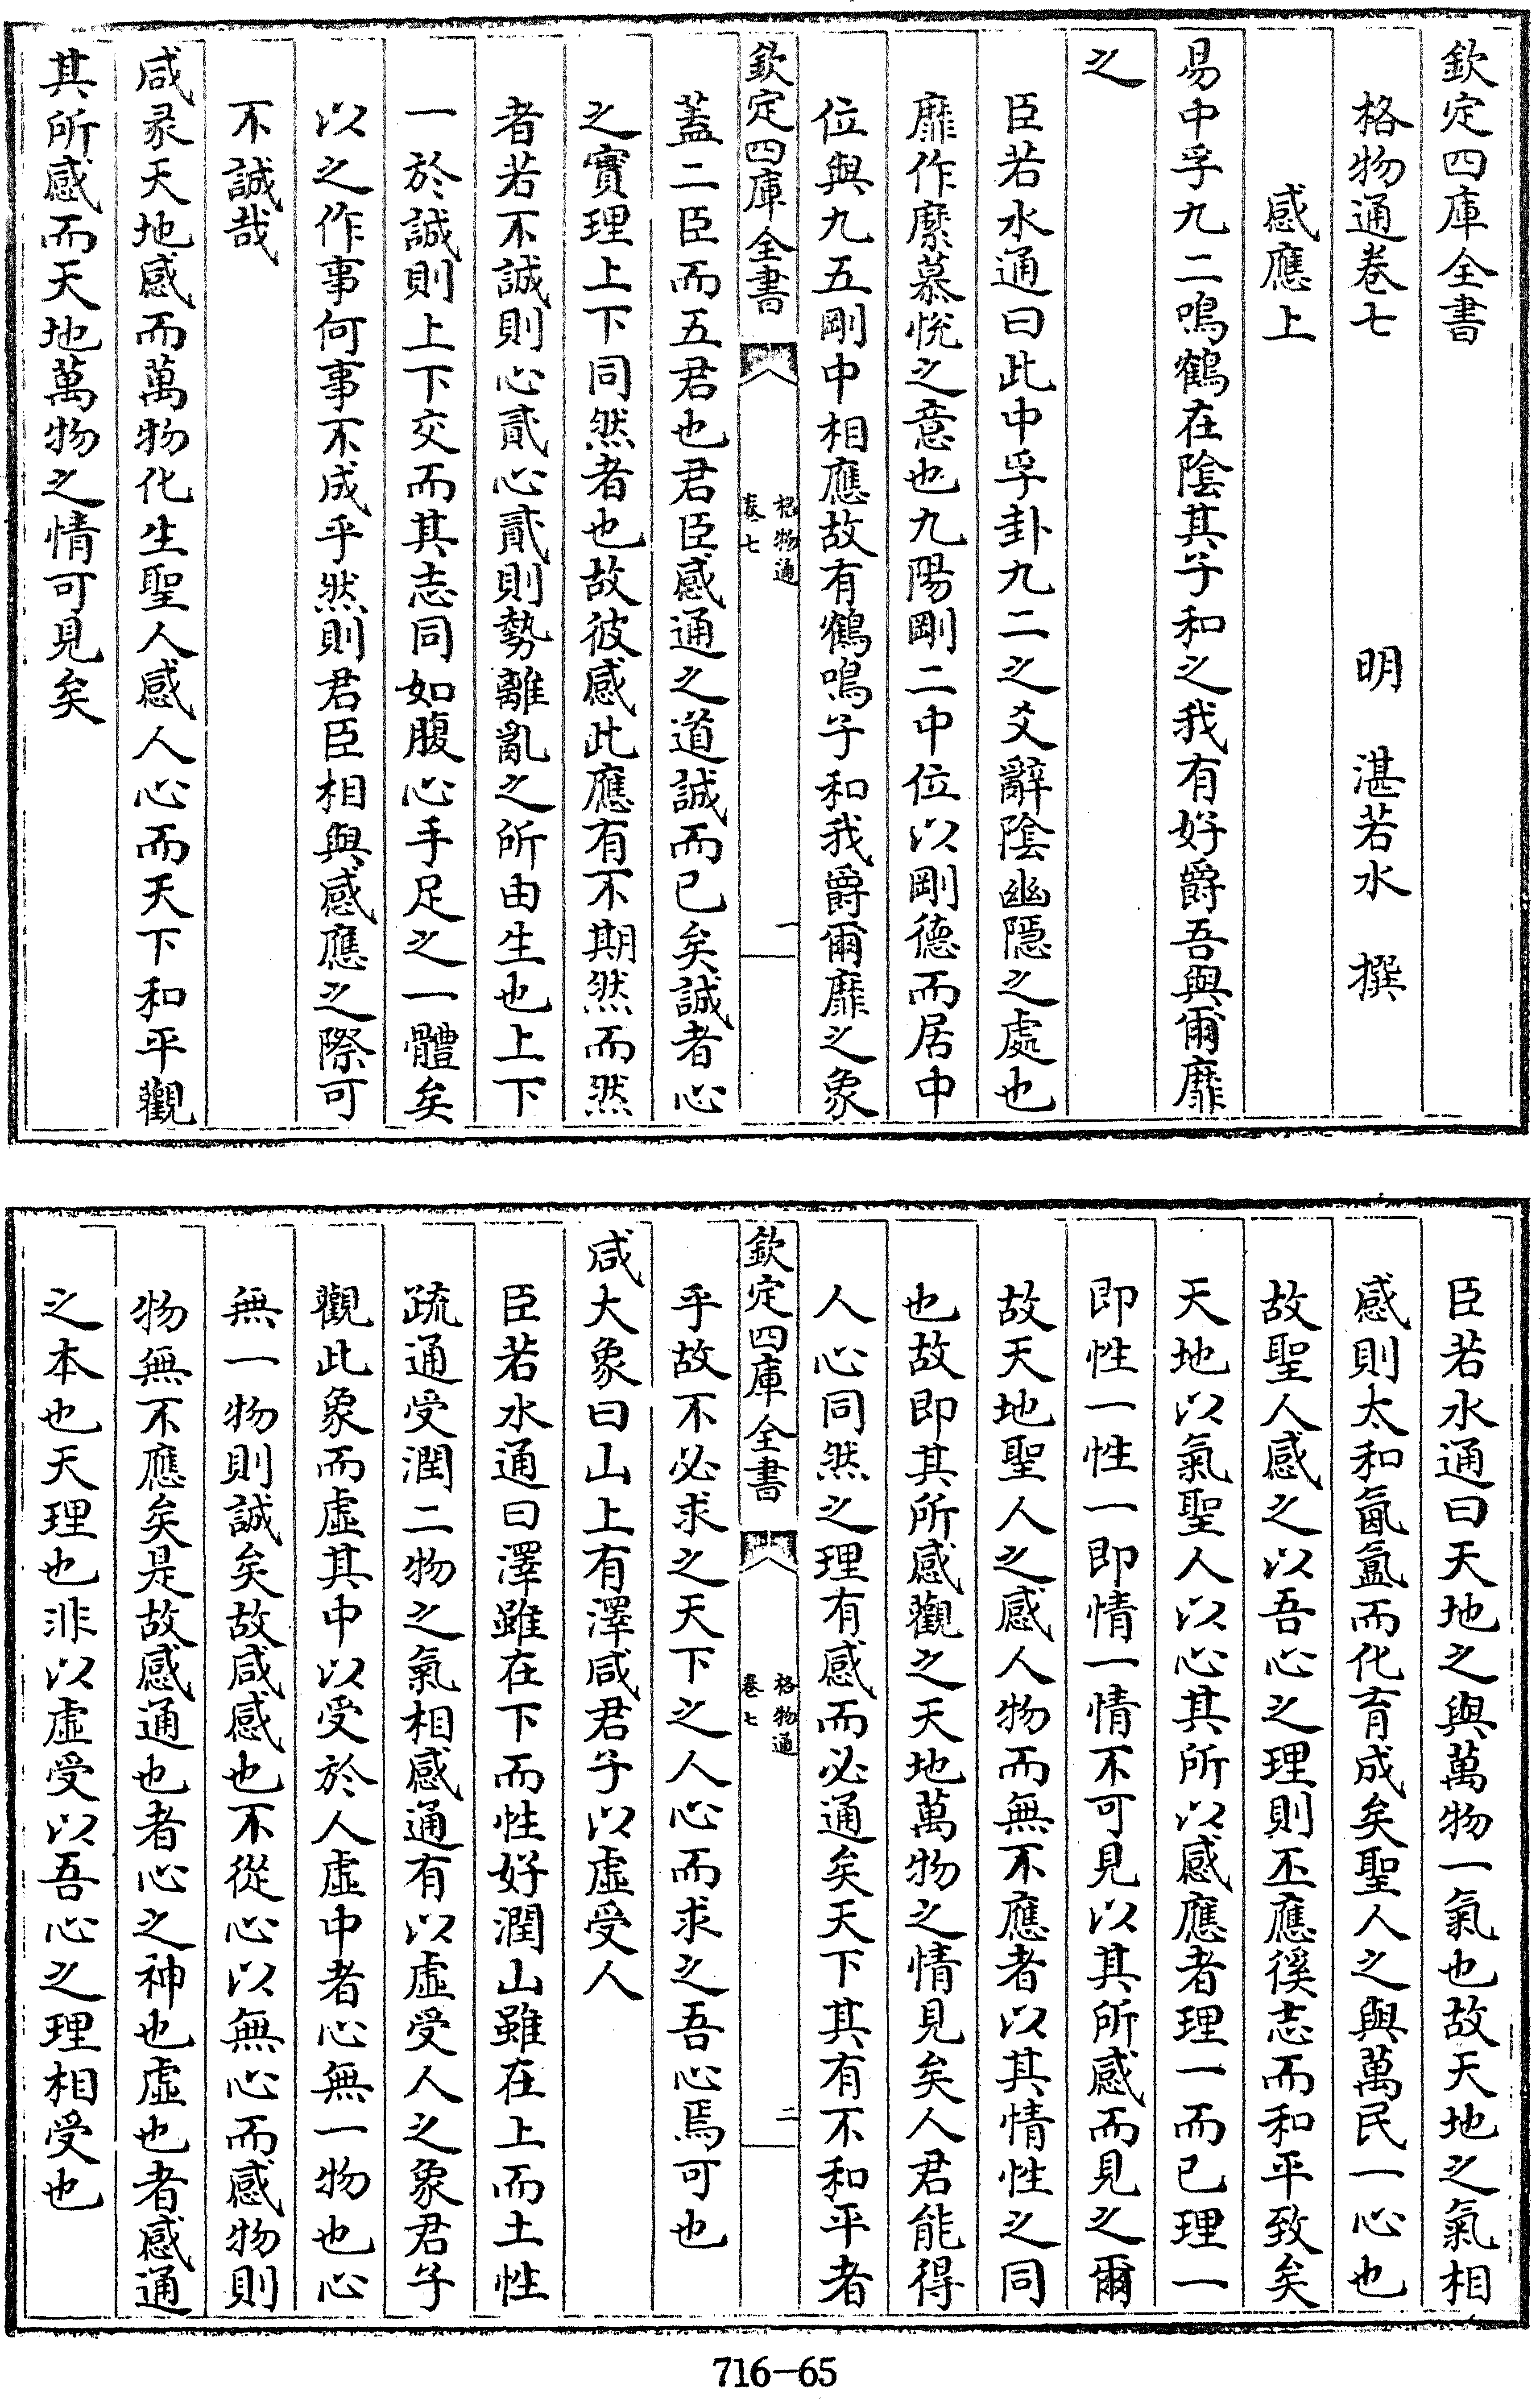 欽定四庫全書
格物通卷七
明 湛若水 撰
感應上
易中孚九二鳴鶴在陰其子和之我有好爵吾與爾靡
之
臣若水通曰此中孚卦九二之爻辭陰幽隱之處也
靡作縻慕恱之意也九陽剛二中位以剛德而居中
位與九五剛中相應故有鶴鳴子和我爵爾靡之象
欽定四庫全書
格物通
卷七
一
蓋二臣而五君也君臣感通之道誠而已矣誠者心
之實理上下同然者也故彼感此應有不期然而然
者若不誠則心貳心貳則勢離亂之所由生也上下
一於誠則上下交而其志同如腹心手足之一體矣
以之作事何事不成乎然則君臣相與感應之際可
不誠哉
咸彖天地感而萬物化生聖人感人心而天下和平觀
其所感而天地萬物之情可見矣
臣若水通曰天地之與萬物一氣也故天地之氣相
感則太和氤氳而化育成矣聖人之與萬民一心也
故聖人感之以吾心之理則丕應徯志而和平致矣
天地以氣聖人以心其所以感應者理一而已理一
即性一性一即情一情不可見以其所感而見之爾
故天地聖人之感人物而無不應者以其情性之同
也故即其所感觀之天地萬物之情見矣人君能得
人心同然之理有感而必通矣天下其有不和平者
欽定四庫全書
格物通
卷七
二
乎故不必求之天下之人心而求之吾心焉可也
咸大象曰山上有澤咸君子以虛受人
臣若水通曰澤雖在下而性好潤山雖在上而土性
疏通受潤二物之氣相感通有以虛受人之象君子
觀此象而虛其中以受於人虛中者心無一物也心
無一物則誠矣故咸感也不從心以無心而感物則
物無不應矣是故感通也者心之神也虛也者感通
之本也天理也非以虛受以吾心之理相受也
716-65